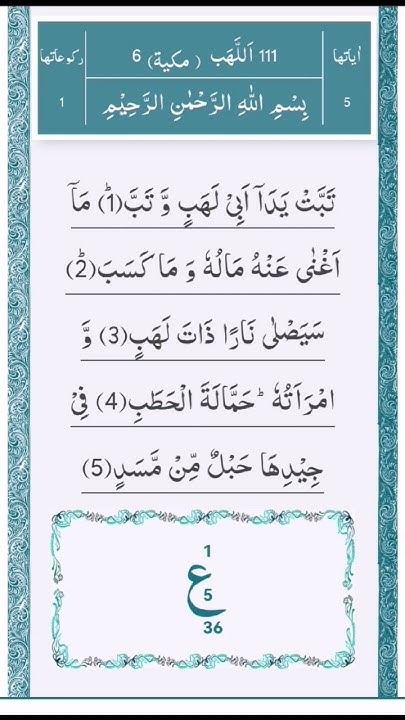 اٰیاتها 111 اَللَّهَب ( مكية) 6 ركوعاتها
5 بِسْمِ اللّٰهِ الرَّحْمٰنِ الرَّحِیْمِ 1
تَبَّتْ یَدَاۤ اَبِیْ لَهَبٍ وَّ تَبَّ(1)ؕ مَاۤ
اَغْنٰى عَنْهُ مَالُهٗ وَ مَا كَسَبَ(2)ؕ
سَیَصْلٰى نَارًا ذَاتَ لَهَبٍ(3) وَّ
امْرَاَتُهٗؕ حَمَّالَةَ الْحَطَبِ(4) فِیْ
جِیْدِهَا حَبْلٌ مِّنْ مَّسَدٍ(5)
1
ع
5
36